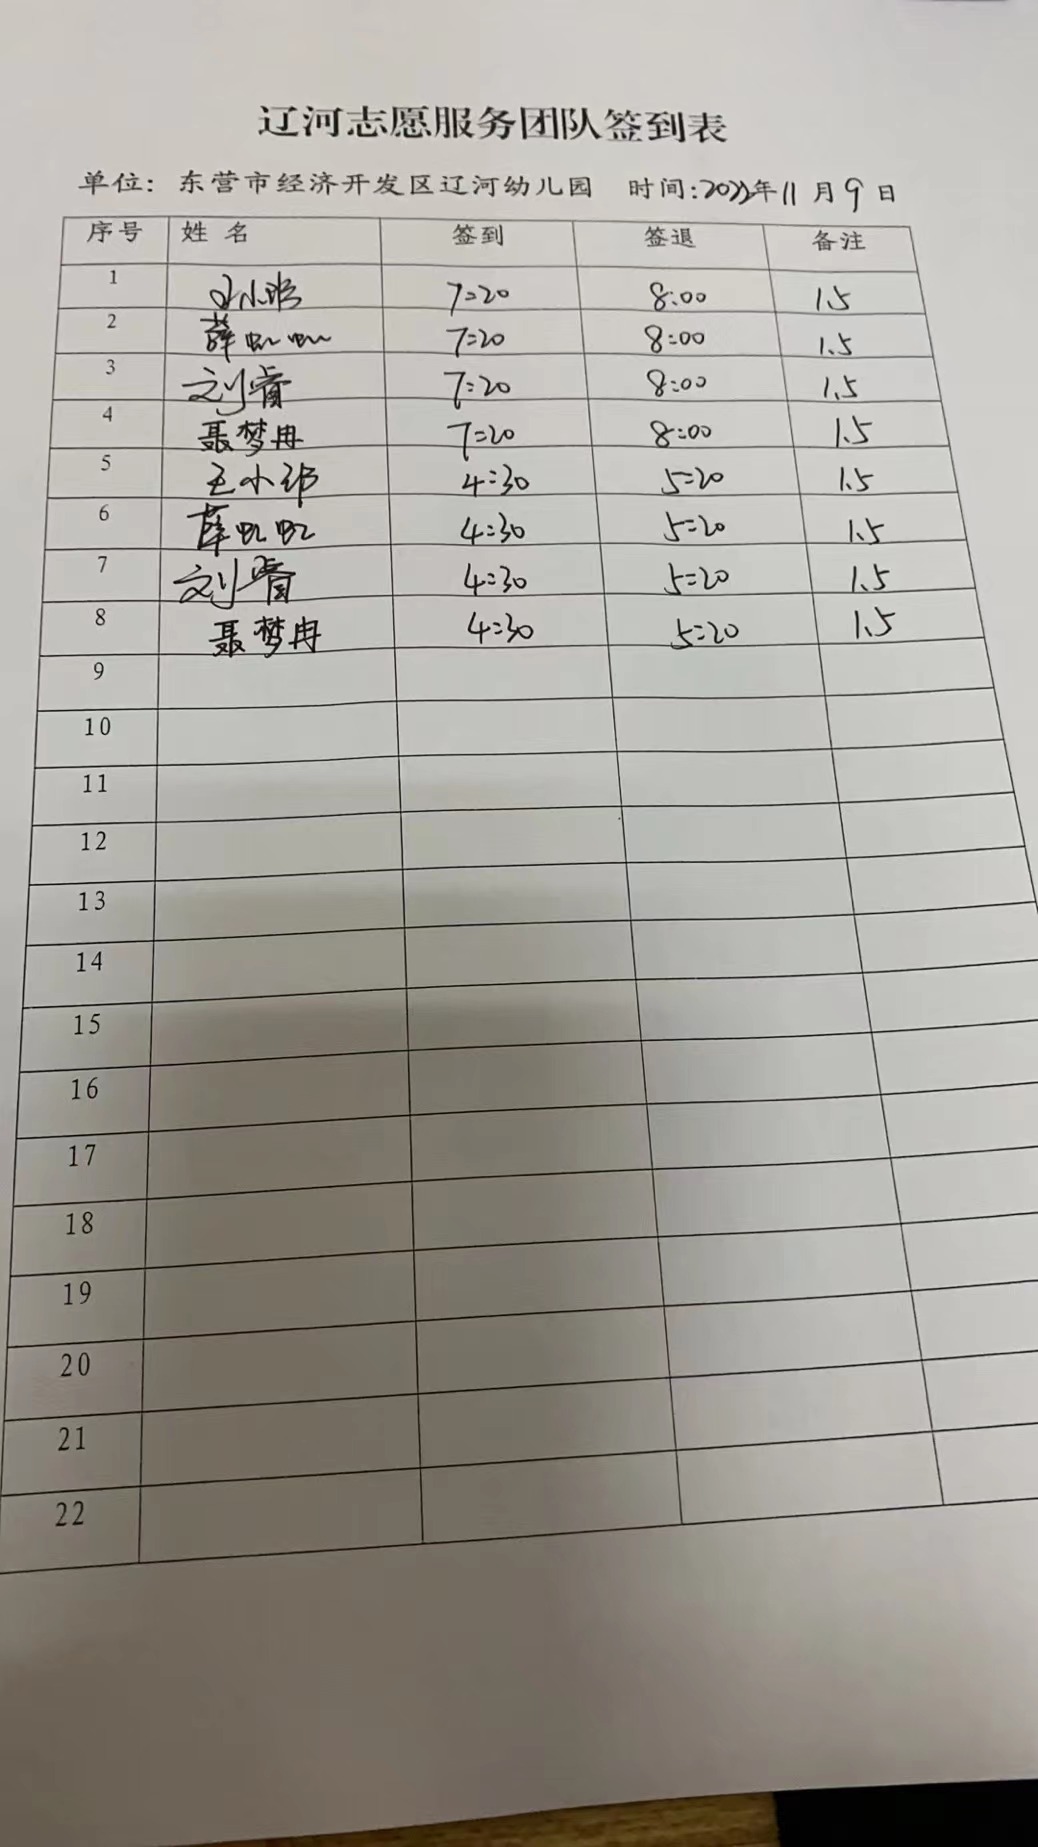 辽河志愿服务团队签到表
单位：东营市经济开发区辽河幼儿园 时间:2022年11月9日
序号 姓 名 签到 签退 备注
1 7:20 8:00 1.5
2 薛 7:20 8:00 1.5
3 刘睿 7:20 8:00 1.5
4 聂梦冉 7:20 8:00 1.5
5 王小 4:30 5:20 1.5
6 薛 4:30 5:20 1.5
7 刘睿 4:30 5:20 1.5
8 聂梦冉 4:30 5:20 1.5
9
10
11
12
13
14
15
16
17
18
19
20
21
22